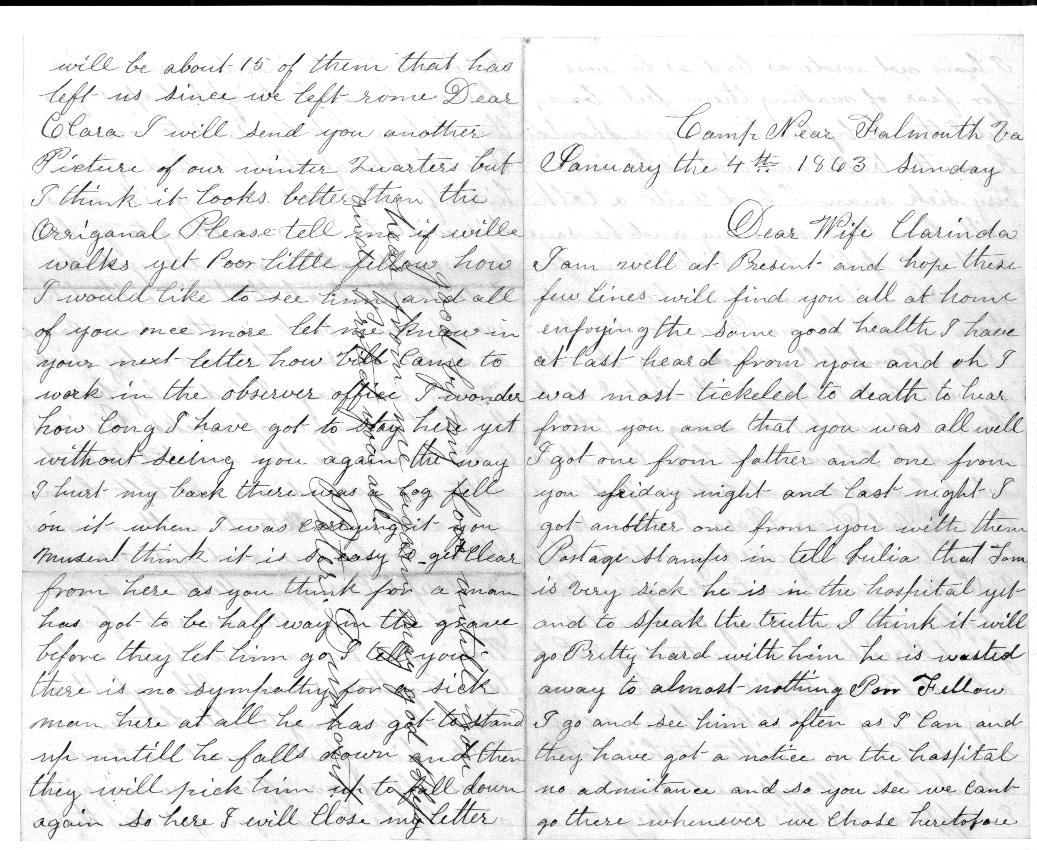 Camp Near Falmouth Va
January the 4th 1863 Sunday
Dear Wife Clarinda
I am well at Present and hope these
few lines will find you all at home
enjoying the same good health I have
at last heard from you and oh I
was most tickeled to death to hear
from you and that you was all well
I got one from father and one from
you friday night and last night I
got another one from you with them
Postage stamps in tell Julia that Tom
is very sick he is in the hospital yet
and to speak the truth I think it will
go Pretty hard with him he is wasted
away to almost nothing Poor Fellow
I go and see him as often as I can and
they have got a notice on the hospital
no admitance and so you see we cant
go there whenever we Chose heretofore
will be about 15 of them that has
left us since we left rome Dear
Clara I will send you another
Picture of our winter Quarters but
I think it looks better than the
Orriganal Please tell me if willie
walks yet Poor little fellow how
I would like to see him and all
of you once more let me know in
your next letter how bill Came to
work in the observer office I wonder
how long I have got to stay here yet
without seeing you again the way
I hurt my back there was a log fell
on it when I was carrying it you
musent think it is so easy get Clear
from here as you think for a man
has got to be half way in the grave
before they let him go I tell you
there is no sympathy for a sick
man here at all he has got to stand
up untill he falls down and then
they will pick him up to fall down
again so here I will Close my letter
good by my love untill you
hear from me again may god
and protect you all